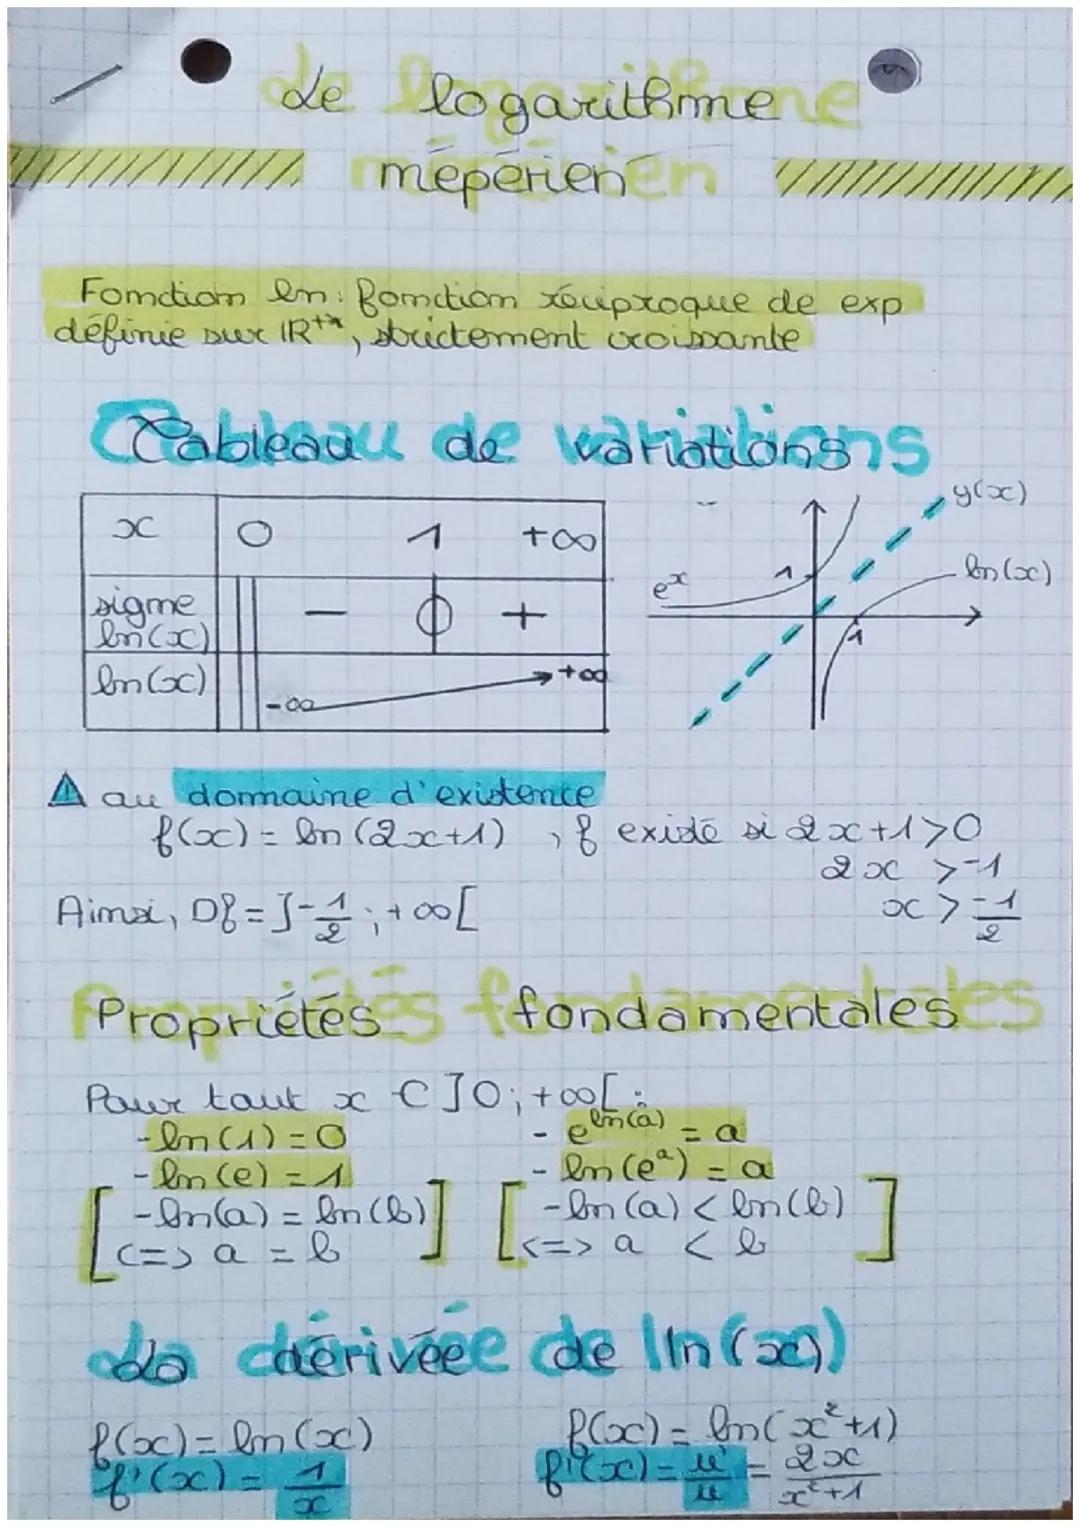 Le logarithme
népérien
Fonction ln : fonction réciproque de exp
définie sur IR+*, strictement croissante
Tableau de variations
x 0 1 +∞
signe
ln(x) - 0 +
ln(x) -∞ +∞
y(x)
e^x 1 ln(x)
1
⚠ au domaine d'existence
f(x) = ln(2x+1) , f existe si 2x+1>0
2x > -1
Ainsi, Df = ]-1/2 ; +∞[ x > -1/2
Propriétés fondamentales
Pour tout x ∈ ]0 ; +∞[ :
- ln(1) = 0 - e^ln(a) = a
- ln(e) = 1 - ln(e^a) = a
[ - ln(a) = ln(b) ] [ - ln(a) < ln(b) ]
<=> a = b <=> a < b
La dérivée de ln(x)
f(x) = ln(x) f(x) = ln(x²+1)
f'(x) = 1/x f'(x) = u'/u = 2x/x²+1